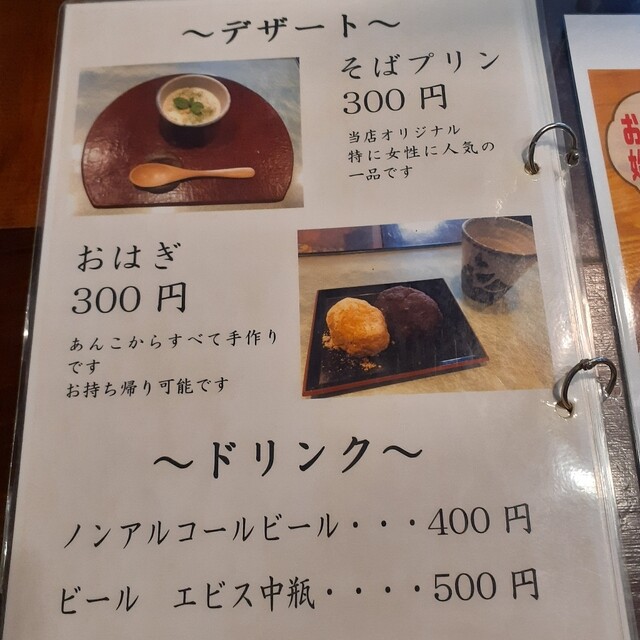 ～デザート～
そばプリン
300 円
当店オリジナル
特に女性に人気の
一品です
おはぎ
300 円
あんこからすべて手作り
です
お持ち帰り可能です
～ドリンク～
ノンアルコールビール・・・400 円
ビール　エビス中瓶・・・・500 円
お